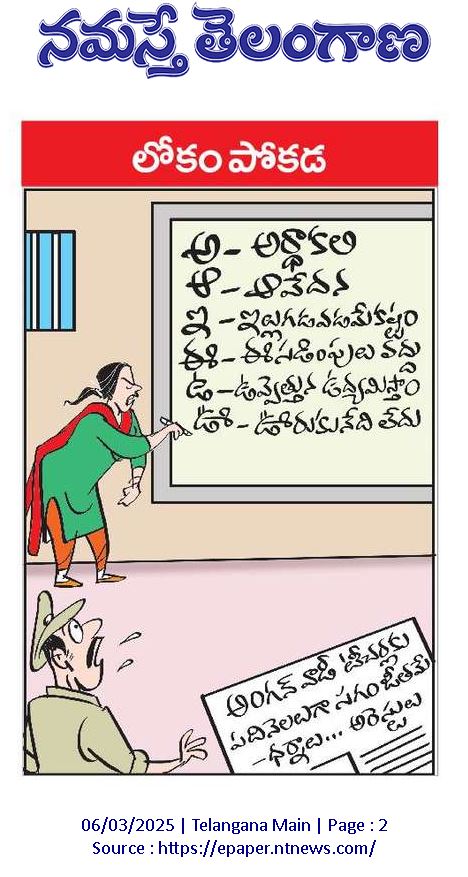 నమస్తే తెలంగాణ
లోకం పోకడ
అ - అర్ధాకలి
ఆ - ఆవేదన
ఇ - ఇల్లుగడవడమేకష్టం
ఈ - ఈసడింపులు వద్దు
ఉ - ఉవ్వెత్తున ఉద్యమిస్తాం
ఊ - ఊరుకునేది లేదు
అంగన్ వాడీ టీచర్లకు
పదినెలలుగా సగం జీతమే
-ధర్నాలు... అరెస్టులు
06/03/2025 | Telangana Main | Page : 2
Source : https://epaper.ntnews.com/